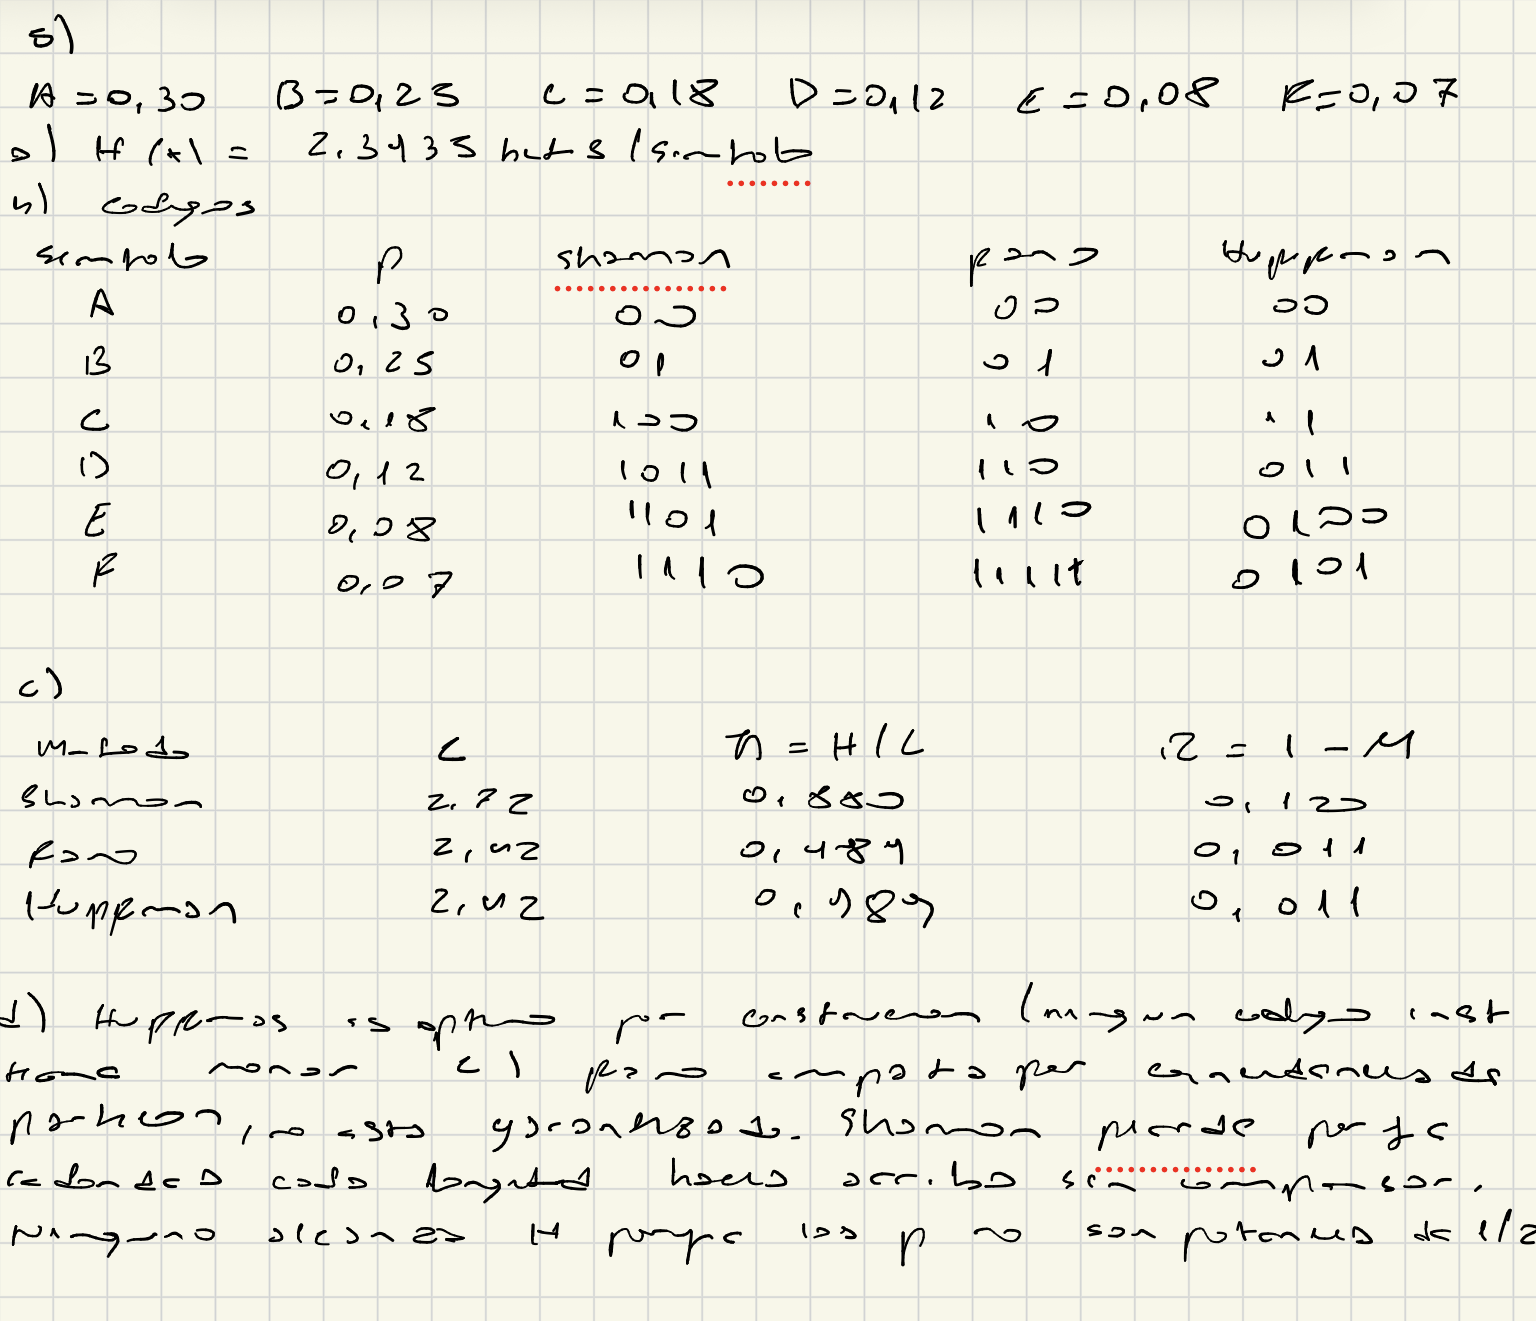 5)
A = 0,30 B = 0,25 C = 0,18 D = 0,12 E = 0,08 F = 0,07
a) H(x) = 2.3435 bits / simbolo
b) codigos
simbolo p shannon fano Huffman
A 0,30 00 00 00
B 0,25 01 01 01
C 0,18 100 10 11
D 0,12 1011 110 011
E 0,08 1101 1110 0100
F 0,07 1110 1111 0101
c)
Metodo L η = H/L R = 1 - η
Shannon 2,72 0,880 0,120
Fano 2,42 0,989 0,011
Huffman 2,42 0,989 0,011
d) Huffman es optimo por construccion (ningun codigo inst
tiene menor L) fano empata por coincidencia de
particion, no esta garantizado. Shannon pierde porque
redondea cada longitud hacia arriba sin compensar.
Ninguno alcanza H porque las p no son potencias de 1/2